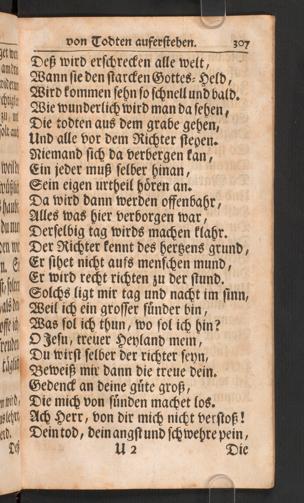 von Todten auferstehen. 307
Deß wird erschrecken alle welt,
Wann sie den starcken Gottes-Held,
Wird kommen sehn so schnell und bald.
Wie wunderlich wird man da sehen,
Die todten aus dem grabe gehen,
Und alle vor dem Richter stehen.
Niemand sich da verbergen kan,
Ein jeder muß selber hinan,
Sein eigen urtheil hören an.
Da wird dann werden offenbahr,
Alles was hier verborgen war,
Derselbig tag wirds machen klahr.
Der Richter kennt des hertzens grund,
Er sihet nicht aufs menschen mund,
Er wird recht richten zu der stund.
Solchs ligt mir tag und nacht im sinn,
Weil ich ein grosser sünder bin,
Was sol ich thun, wo sol ich hin?
O Jesu, treuer Heyland mein,
Du wirst selber der richter seyn,
Beweiß mir dann die treue dein.
Gedenck an deine güte groß,
Die mich von sünden machet los.
Ach Herr, von dir mich nicht verstoß!
Dein tod, dein angst und schwehre pein,
U 2 Die